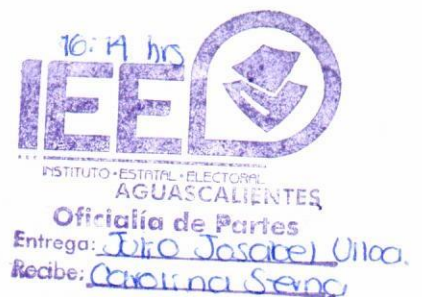 16:14 hrs
IEE
INSTITUTO • ESTATAL • ELECTORAL
AGUASCALIENTES
Oficialía de Partes
Entrega: Julio Ulloa.
Recibe: Carolina Serna